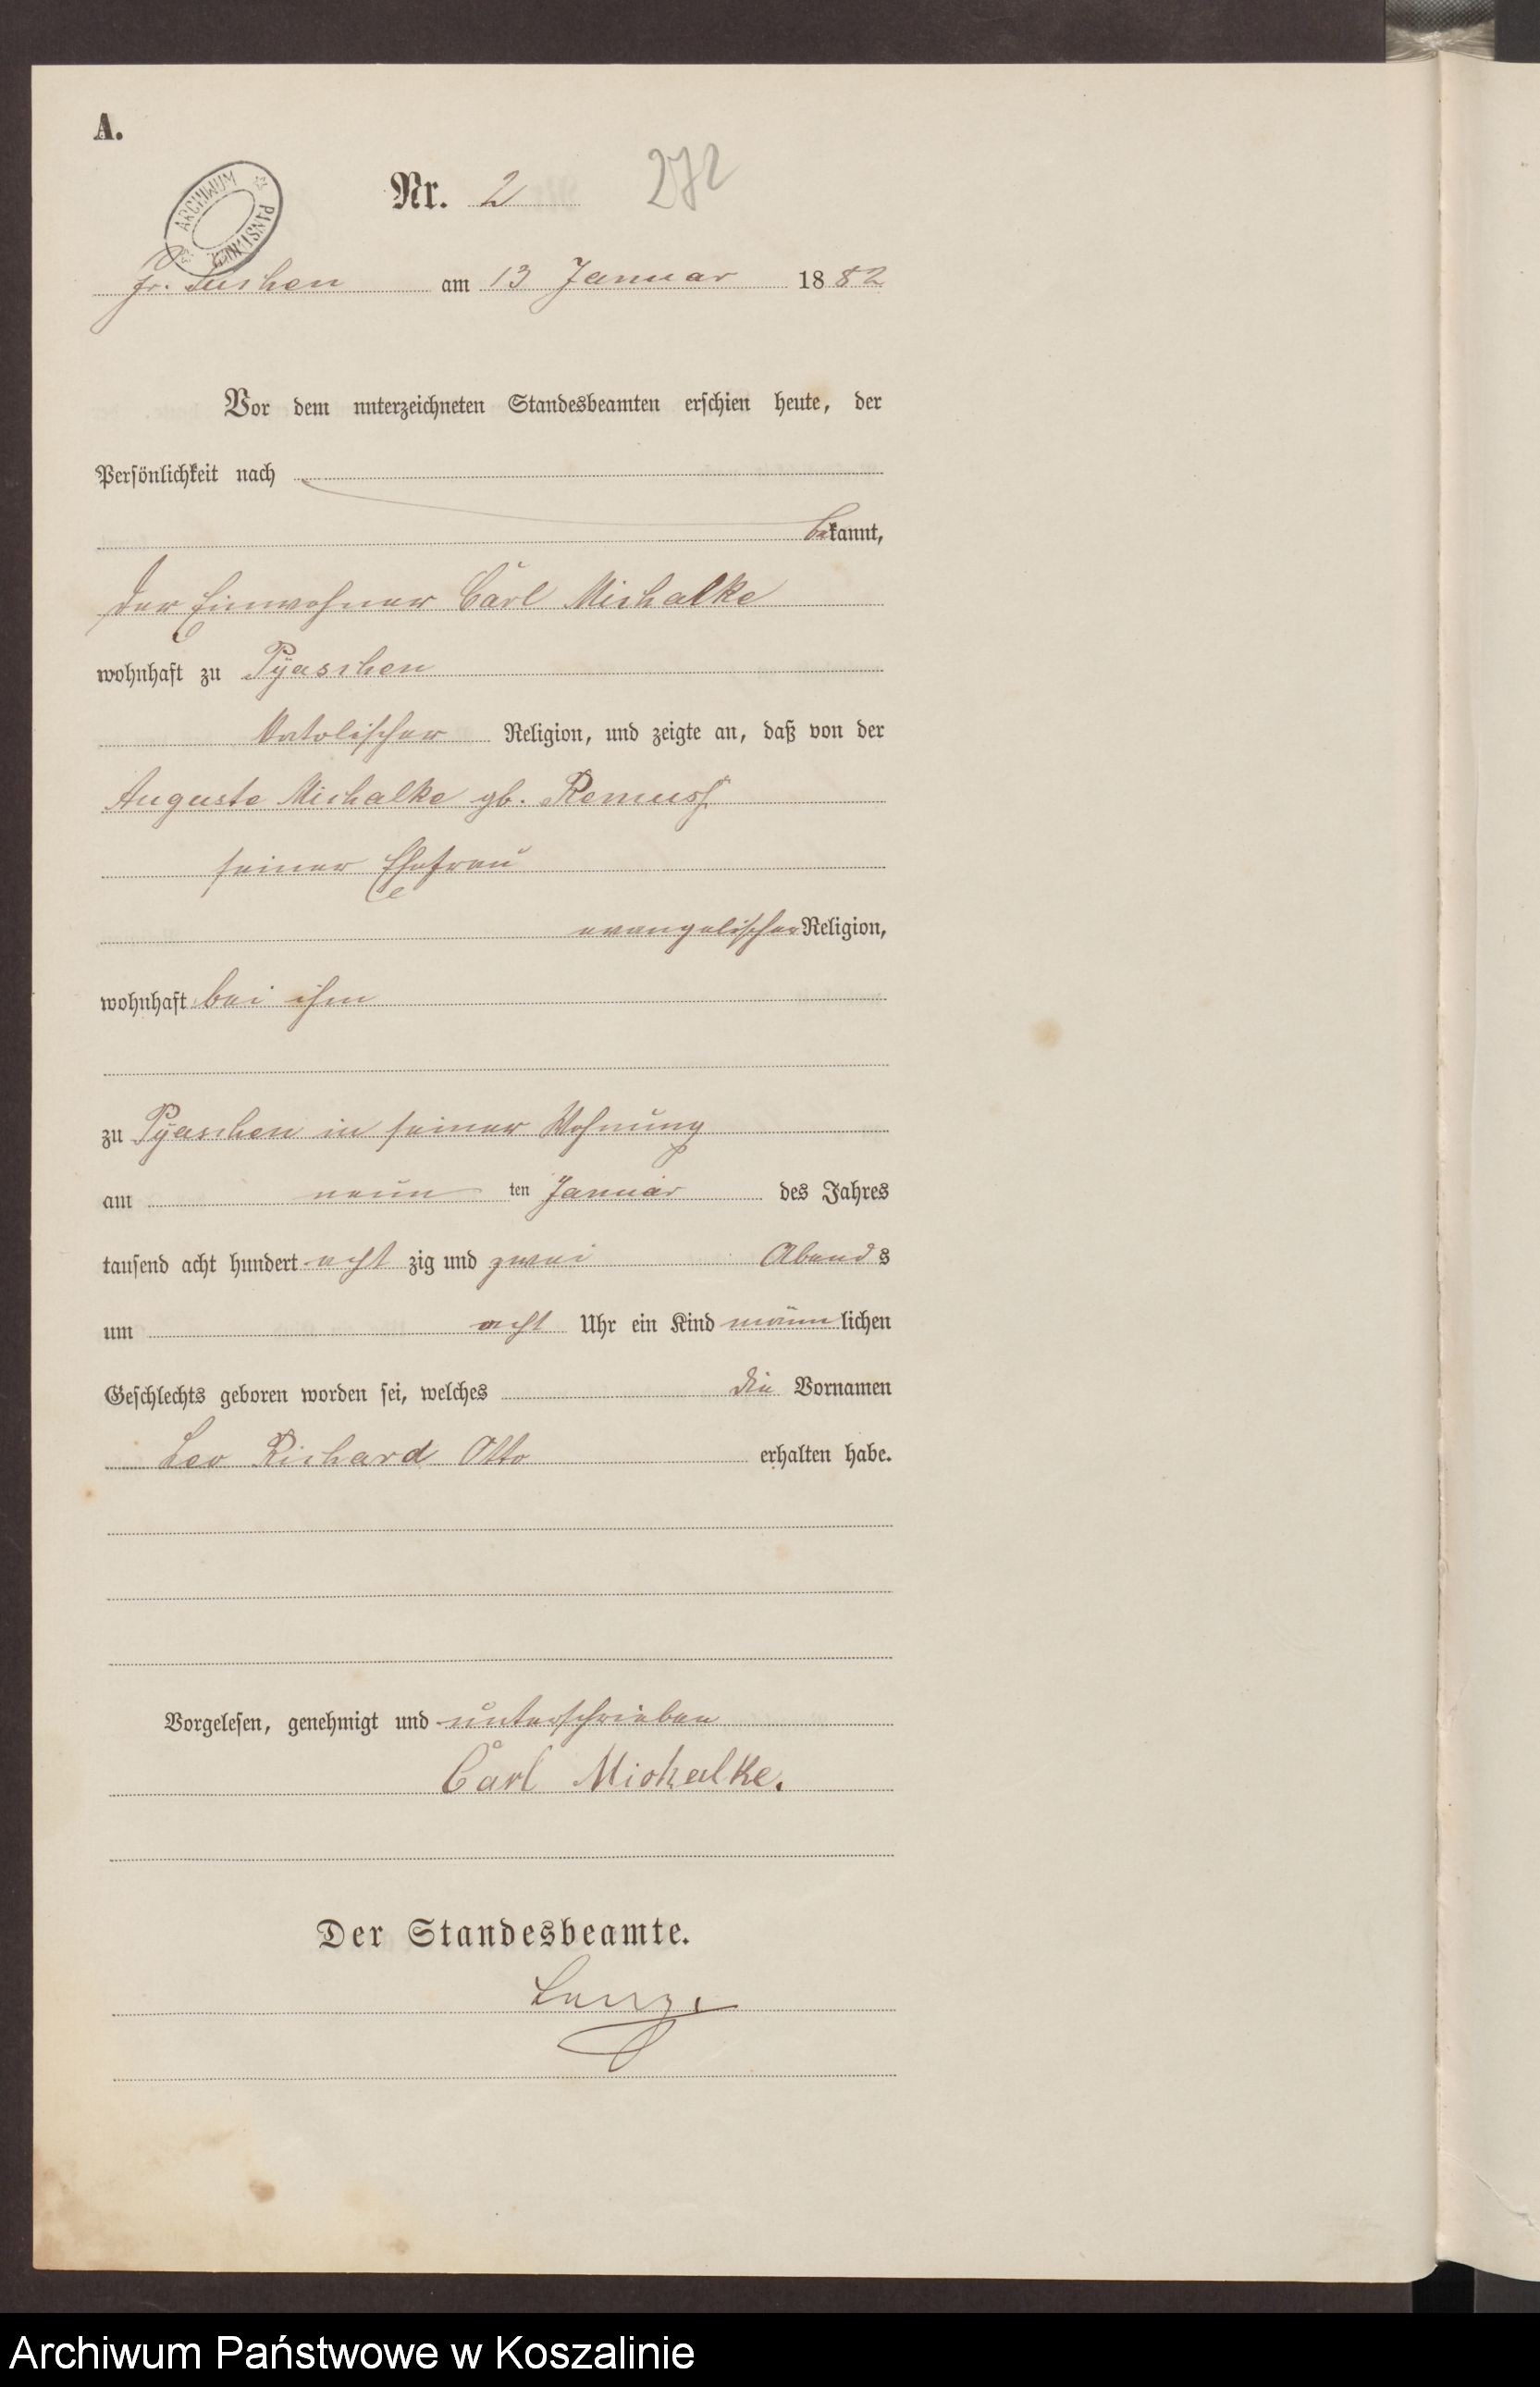 A.
Nr. 2
272
ARCHIWUM PAŃSTWOWE
Gr. Tuchen am 13 Januar 1882
Vor dem unterzeichneten Standesbeamten erschien heute, der
Persönlichkeit nach
bekannt,
der Einwohner Carl Michalke
wohnhaft zu Pyaschen
katolischer Religion, und zeigte an, daß von der
Auguste Michalke gb. Remuss
seiner Ehefrau
evangelischer Religion,
wohnhaft bei ihm
zu Pyaschen in seiner Wohnung
am neun ten Januar des Jahres
tausend acht hundert acht zig und zwei Abends
um acht Uhr ein Kind männlichen
Geschlechts geboren worden sei, welches die Vornamen
Leo Richard Otto erhalten habe.
Vorgelesen, genehmigt und unterschrieben
Carl Michalke.
Der Standesbeamte.
Archiwum Państwowe w Koszalinie